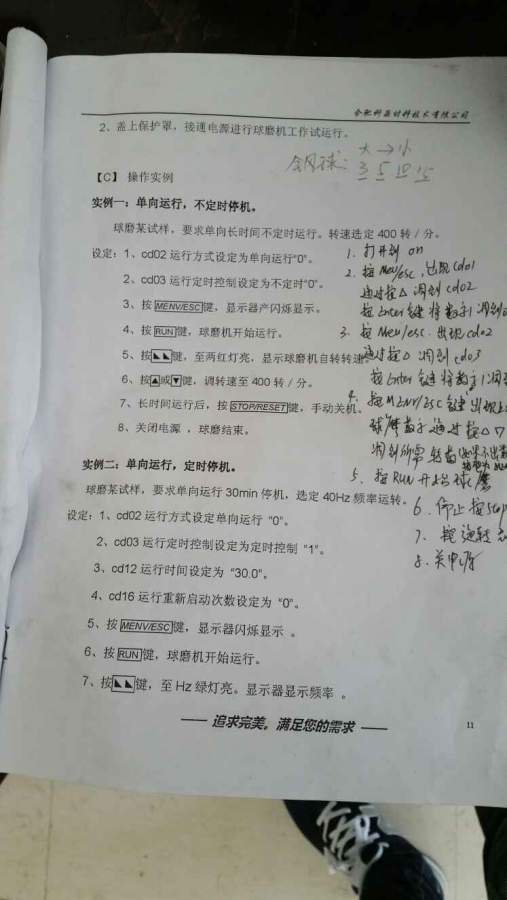 合肥科晶材料技术有限公司
2、盖上保护罩，接通电源进行球磨机工作试运行。
钢球：大→小
3 5 10 15
【C】 操作实例
实例一：单向运行，不定时停机。
球磨某试样，要求单向长时间不定时运行。转速选定 400 转／分。
设定：1、cd02 运行方式设定为单向运行"0"。
2、cd03 运行定时控制设定为不定时"0"。
3、按MENV/ESC键，显示器产闪烁显示。
4、按RUN键，球磨机开始运行。
5、按◣◣键，至两红灯亮，显示球磨机自转转速
6、按▲或▼键，调转速至 400 转／分。
7、长时间运行后，按STOP/RESET键，手动关机。
8、关闭电源 ，球磨结束。
1. 打开到 on
2. 按 Menu/esc，出现 cd01
通过按△ 调到 cd02
按 Enter 键 将数字1调到0
3. 按 Menu/esc. 出现 cd02
通过按△ 调到 cd03
按 Enter 键将数字1调
4. 按 MENV/ESC 键 出现
球磨数字 通过按△▽
调到所需转
5. 按 RUN 开始球磨
6. 停止 按 stop
7. 旋
8. 关电源
实例二：单向运行，定时停机。
球磨某试样，要求单向运行 30min 停机，选定 40Hz 频率运转。
设定：1、cd02 运行方式设定单向运行 "0"。
2、cd03 运行定时控制设定为定时控制 "1"。
3、cd12 运行时间设定为 "30.0"。
4、cd16 运行重新启动次数设定为 "0"。
5、按MENV/ESC键，显示器闪烁显示 。
6、按RUN键，球磨机开始运行。
7、按◣◣键，至 Hz 绿灯亮。显示器显示频率 。
—— 追求完美，满足您的需求 ——
11